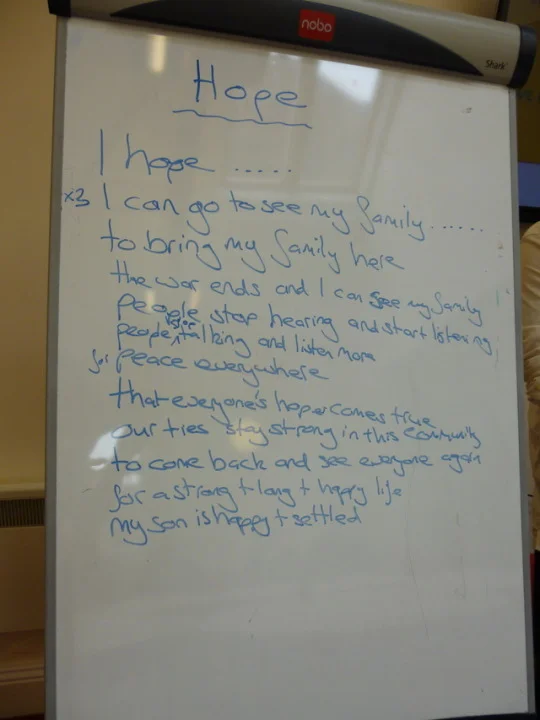 nobo
Shark
Hope
I hope .....
x3 I can go to see my family ......
to bring my family here
the war ends and I can see my family
people stop hearing and start listening
people stop talking and listen more
for peace everywhere
that everyone's hope comes true
our ties stay strong in this community
to come back and see everyone again
for a strong + long + happy life
my son is happy + settled